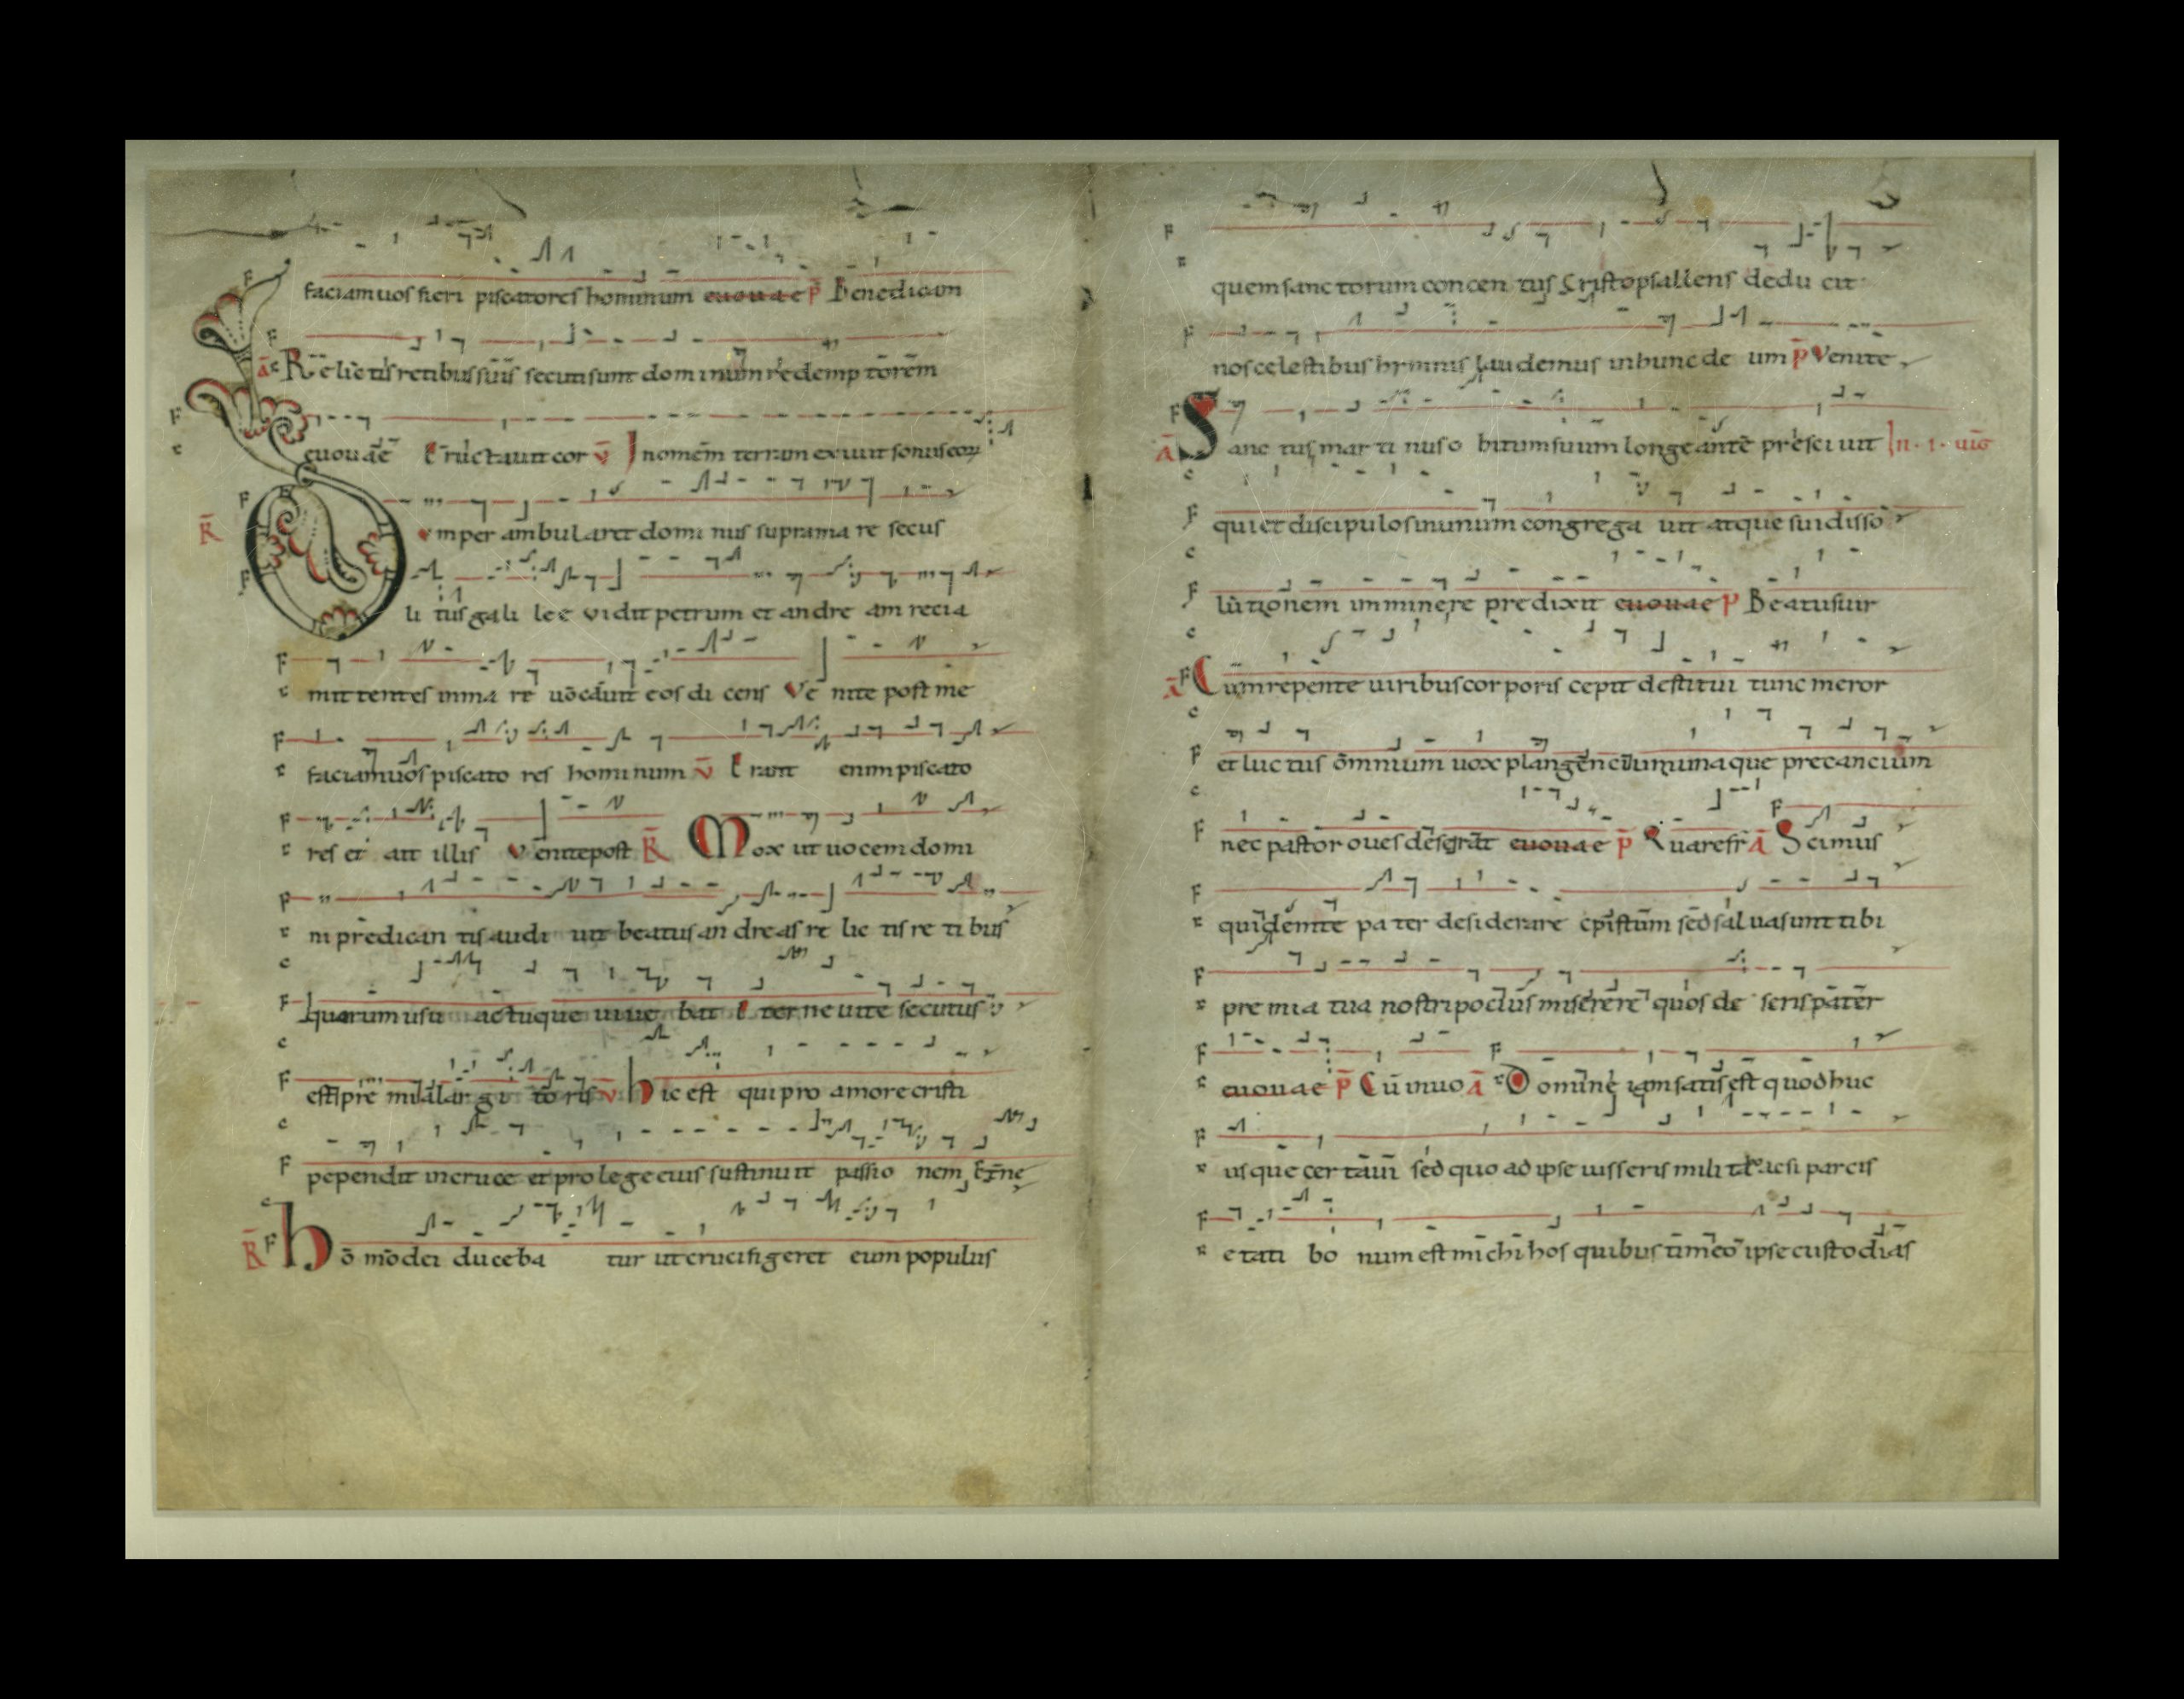 faciam uos fieri piscatores hominum euouae p̄ Benedicam
ā Relictis retibus suis secuti sunt dominum redemptorem
euouae Eructauit cor v̄ In omnem terram exiuit sonus eoꝝ
R̄ Dum perambularet dominus supra mare secus
litus galilee vidit petrum et andream recia
mittentes in mare uocauit eos dicens Venite post me
faciam uos piscatores hominum v̄ Erant enim piscato
res et ait illis Venite post R̄ Mox ut uocem domi
ni predicantis audiuit beatus andreas relictis retibus
quorum usu actuque uiuebat Eterne uite secutus
est premia largitoris v̄ hic est qui pro amore cristi
pependit in cruce et pro lege eius sustinuit passionem
R̄ homo dei ducebatur ut crucifigeret eum populus
quem sanctorum concentus psallens deducit
nos celestibus hymnis laudemus in hunc deum p̄ Venite
ā Sanctus martinus obitum suum longe ante presciuit In · 1 ·
qui et discipulos in unum congregauit atque sui disso
lutionem imminere predixit euouae p̄ Beatus uir
ā Cum repente uiribus corporis cepit destitui tunc meror
et luctus omnium uox plangencium una que precancium
nec pastor oues deserat euouae p̄ Quare fr ā Scimus
quidem te pater desiderare sed salua sunt tibi
premia tua nostri pocius miserere quos deseris pater
euouae p̄ Cū inuo ā Domine iam satis est quod huc
usque certaui sed quo ad ipse iusseris militie parcis
etati bonum est michi hos quibus timeo ipse custodias